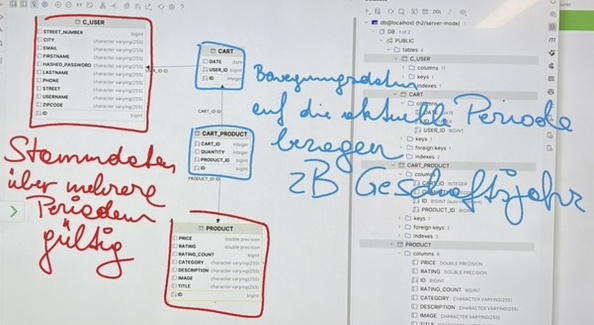 C_USER
STREET_NUMBER bigint
CITY character varying(255)
EMAIL character varying(255)
FIRSTNAME character varying(255)
HASHED_PASSWORD character varying(255)
LASTNAME character varying(255)
PHONE character varying(255)
STREET character varying(255)
USERNAME character varying(255)
ZIPCODE character varying(255)
ID bigint
CART
DATE date
USER_ID bigint
ID integer
CART_ID:ID
CART_PRODUCT
CART_ID integer
QUANTITY integer
PRODUCT_ID bigint
ID bigint
PRODUCT_ID:ID
PRODUCT
PRICE double precision
RATING double precision
RATING_COUNT bigint
CATEGORY character varying(255)
DESCRIPTION character varying(255)
IMAGE character varying(255)
TITLE character varying(255)
ID bigint
Stammdaten
über mehrere
Perioden
gültig
Bewegungsdaten
auf die aktuelle Periode
bezogen
zB Geschäftsjahr
Database
db@localhost (h2/server-mode)
DB 1 of 3
PUBLIC
tables 4
C_USER
columns 11
keys 1
indexes
CART
columns
DATE
ID
USER_ID BIGINT
keys
foreign keys 1
indexes 2
CART_PRODUCT
columns
CART_ID INTEGER
QUANTITY
ID BIGINT
PRODUCT_ID BIGINT
keys
foreign keys 2
indexes
PRODUCT
columns 8
PRICE DOUBLE PRECISION
RATING DOUBLE PRECISION
ID BIGINT
RATING_COUNT BIGINT
CATEGORY CHARACTER VARYING(255)
DESCRIPTION CHARACTER VARYING(255)
IMAGE CHARACTER VARYING(255)
TITLE CHARACTER VARYING(255)